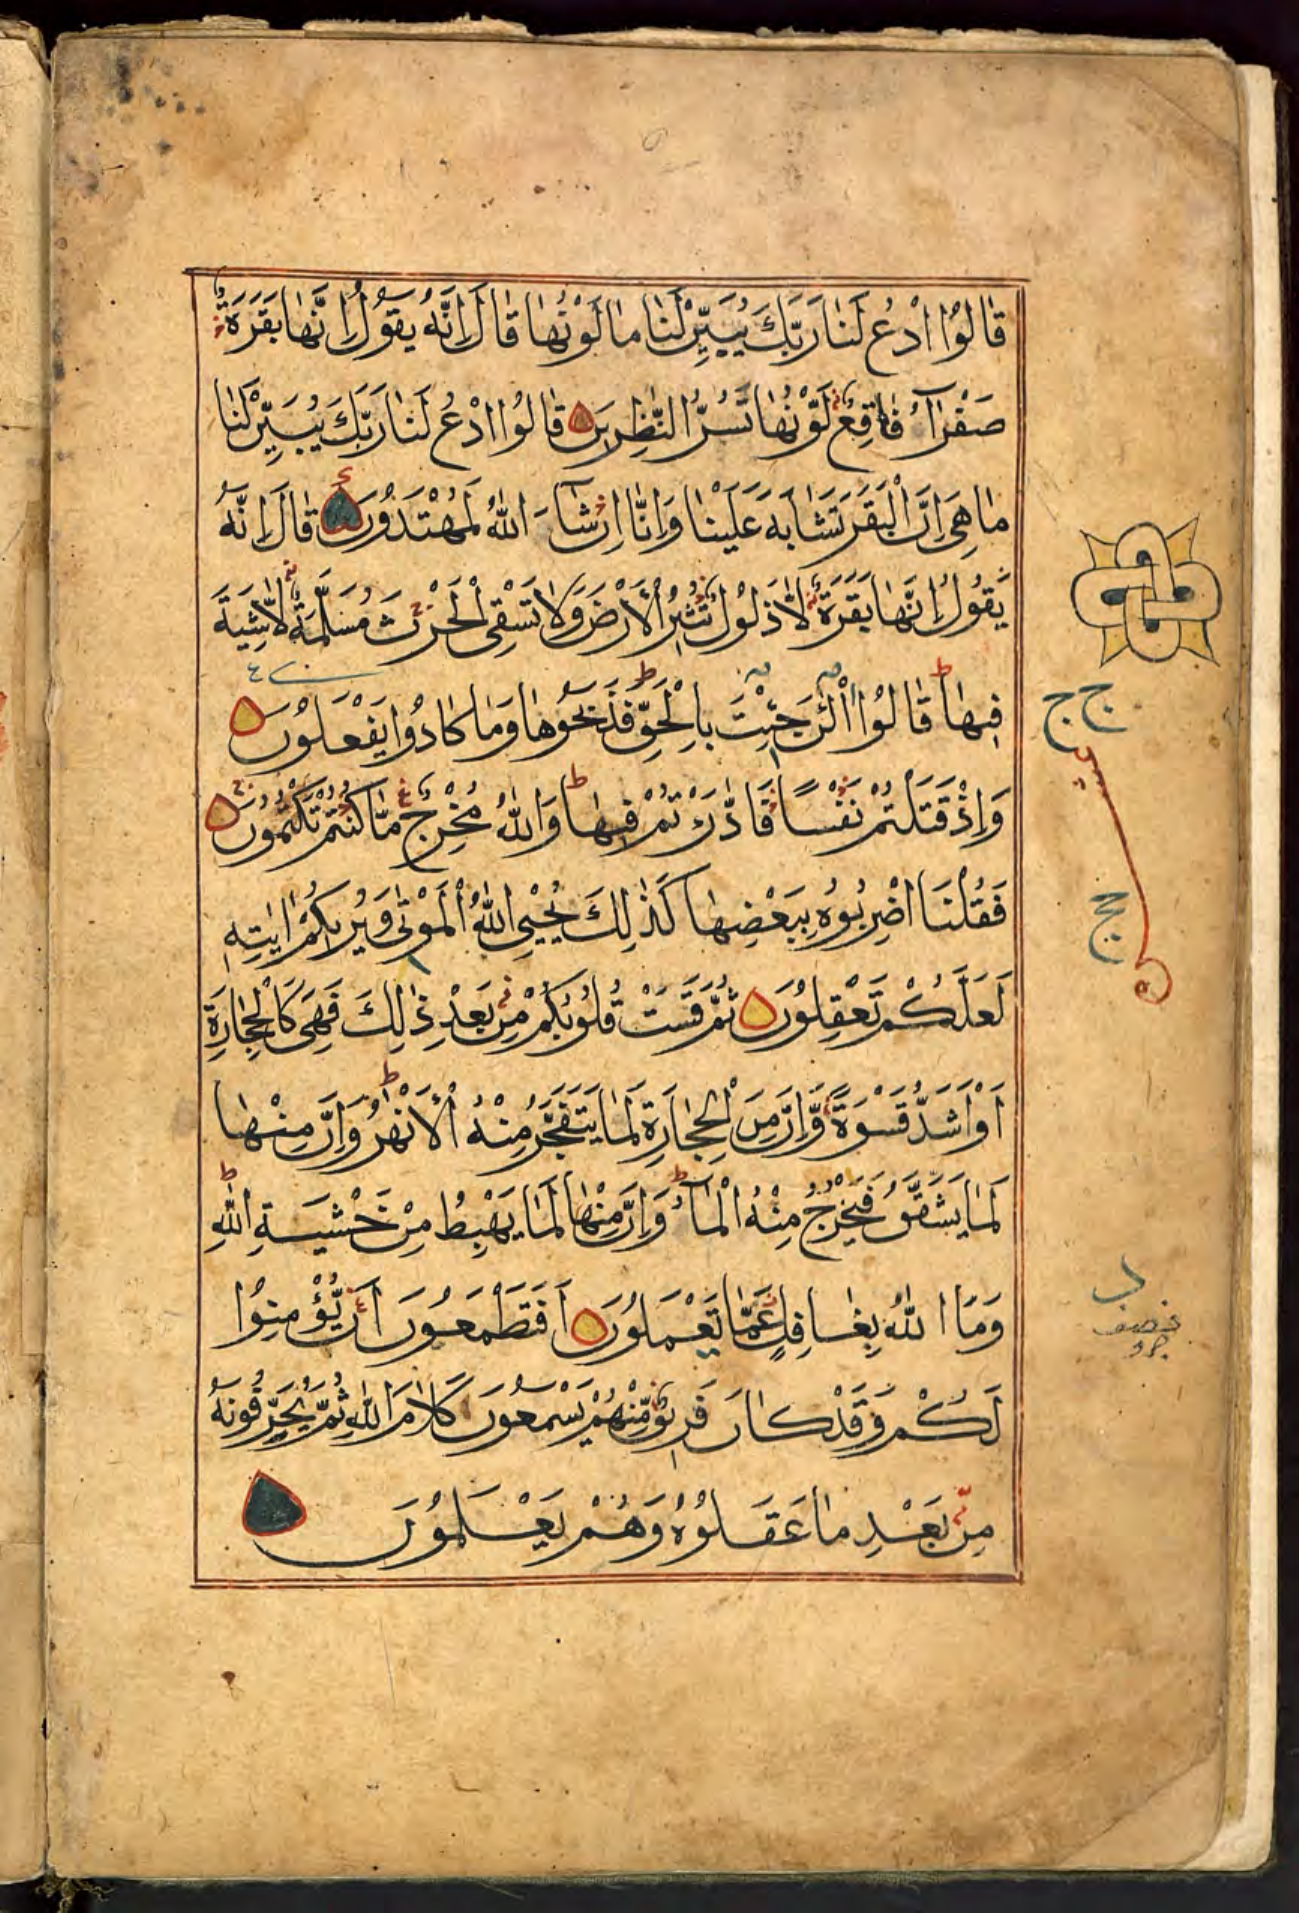 قَالُوا ادْعُ لَنَا رَبَّكَ يُبَيِّنْ لَنَا مَا لَوْنُهَا قَالَ اِنَّهُ يَقُولُ اِنَّهَا بَقَرَةٌ
صَفْرَآءُ فَاقِعٌ لَوْنُهَا تَسُرُّ النّٰظِرِينَ قَالُوا ادْعُ لَنَا رَبَّكَ يُبَيِّنْ لَنَا
مَا هِيَ اِنَّ الْبَقَرَ تَشَابَهَ عَلَيْنَا وَاِنَّا اِنْ شَآءَ اللّٰهُ لَمُهْتَدُونَ قَالَ اِنَّهُ
يَقُولُ اِنَّهَا بَقَرَةٌ لَا ذَلُولٌ تُثِيرُ الْاَرْضَ وَلَا تَسْقِى الْحَرْثَ مُسَلَّمَةٌ لَا شِيَةَ
فِيهَا قَالُوا الْئٰنَ جِئْتَ بِالْحَقِّ فَذَبَحُوهَا وَمَا كَادُوا يَفْعَلُونَ
وَاِذْ قَتَلْتُمْ نَفْسًا فَادّٰرَءْتُمْ فِيهَا وَاللّٰهُ مُخْرِجٌ مَا كُنْتُمْ تَكْتُمُونَ
فَقُلْنَا اضْرِبُوهُ بِبَعْضِهَا كَذٰلِكَ يُحْيِي اللّٰهُ الْمَوْتٰى وَيُرِيكُمْ اٰيٰتِهِ
لَعَلَّكُمْ تَعْقِلُونَ ثُمَّ قَسَتْ قُلُوبُكُمْ مِنْ بَعْدِ ذٰلِكَ فَهِيَ كَالْحِجَارَةِ
اَوْ اَشَدُّ قَسْوَةً وَّاِنَّ مِنَ الْحِجَارَةِ لَمَا يَتَفَجَّرُ مِنْهُ الْاَنْهٰرُ وَاِنَّ مِنْهَا
لَمَا يَشَّقَّقُ فَيَخْرُجُ مِنْهُ الْمَآءُ وَاِنَّ مِنْهَا لَمَا يَهْبِطُ مِنْ خَشْيَةِ اللّٰهِ
وَمَا اللّٰهُ بِغَافِلٍ عَمَّا تَعْمَلُونَ اَفَتَطْمَعُونَ اَنْ يُّؤْمِنُوا
لَكُمْ وَقَدْ كَانَ فَرِيقٌ مِّنْهُمْ يَسْمَعُونَ كَلَامَ اللّٰهِ ثُمَّ يُحَرِّفُونَهُ
مِنْ بَعْدِ مَا عَقَلُوهُ وَهُمْ يَعْلَمُونَ